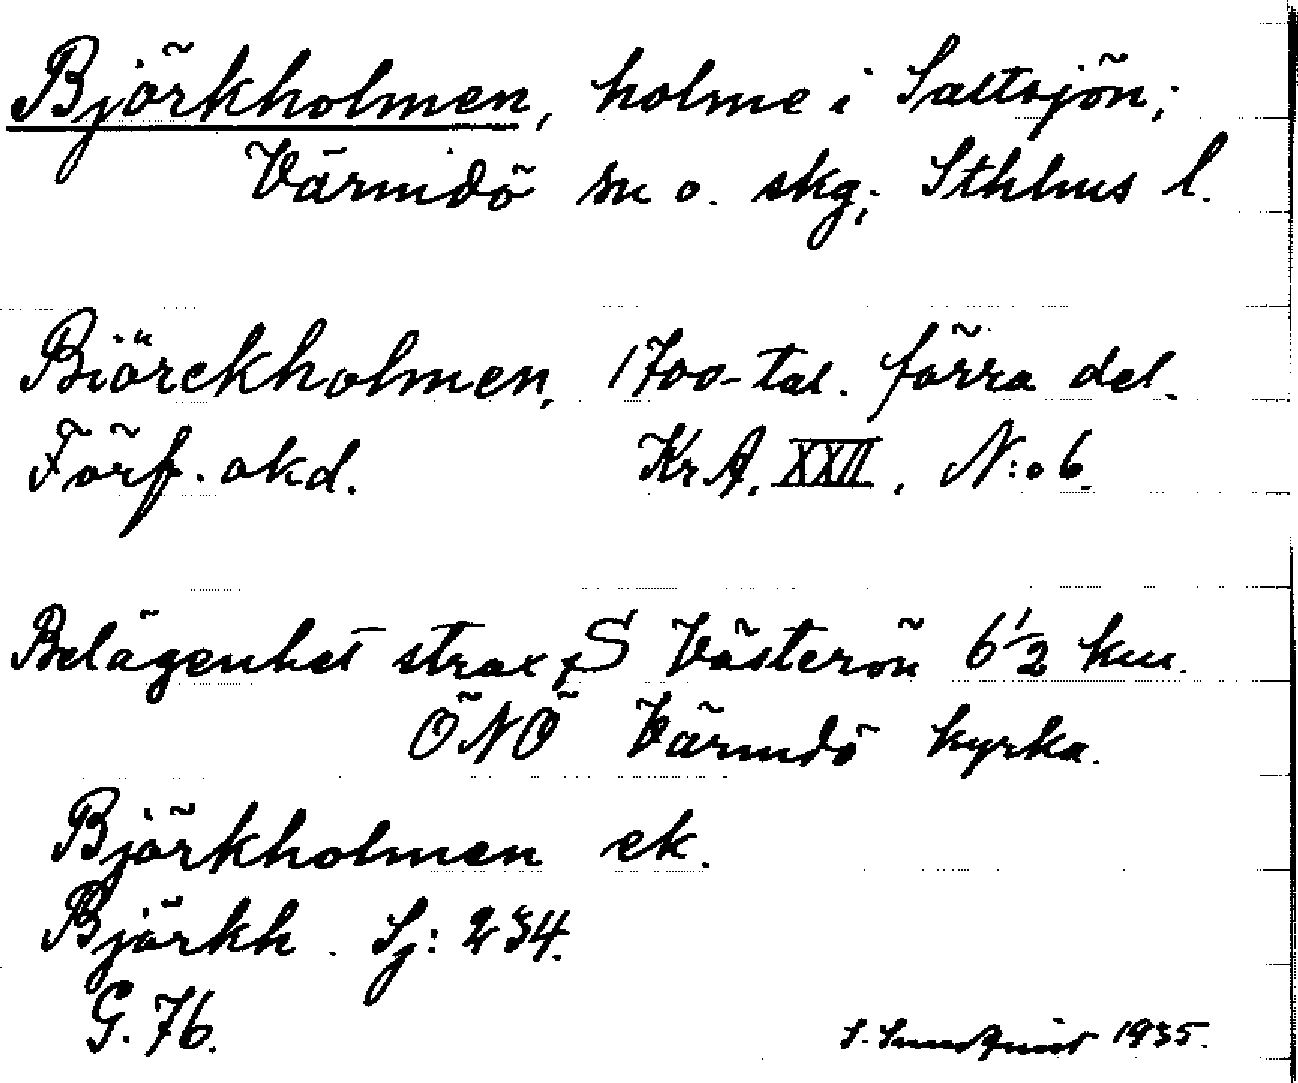 Björkholmen, holme i Saltsjön;
Värmdö sn o. skg; Sthlms l.
Biörckholmen, 1700-tal. förra del.
Förf. okd. Kr.A. XXII, N:o 6.
Belägenhet strax S Västerön 6 1/2 km.
ÖNÖ Värmdö kyrka.
Björkholmen ek.
Björkh. Sj: 234.
G. 76.
S. Sundqvist 1935.